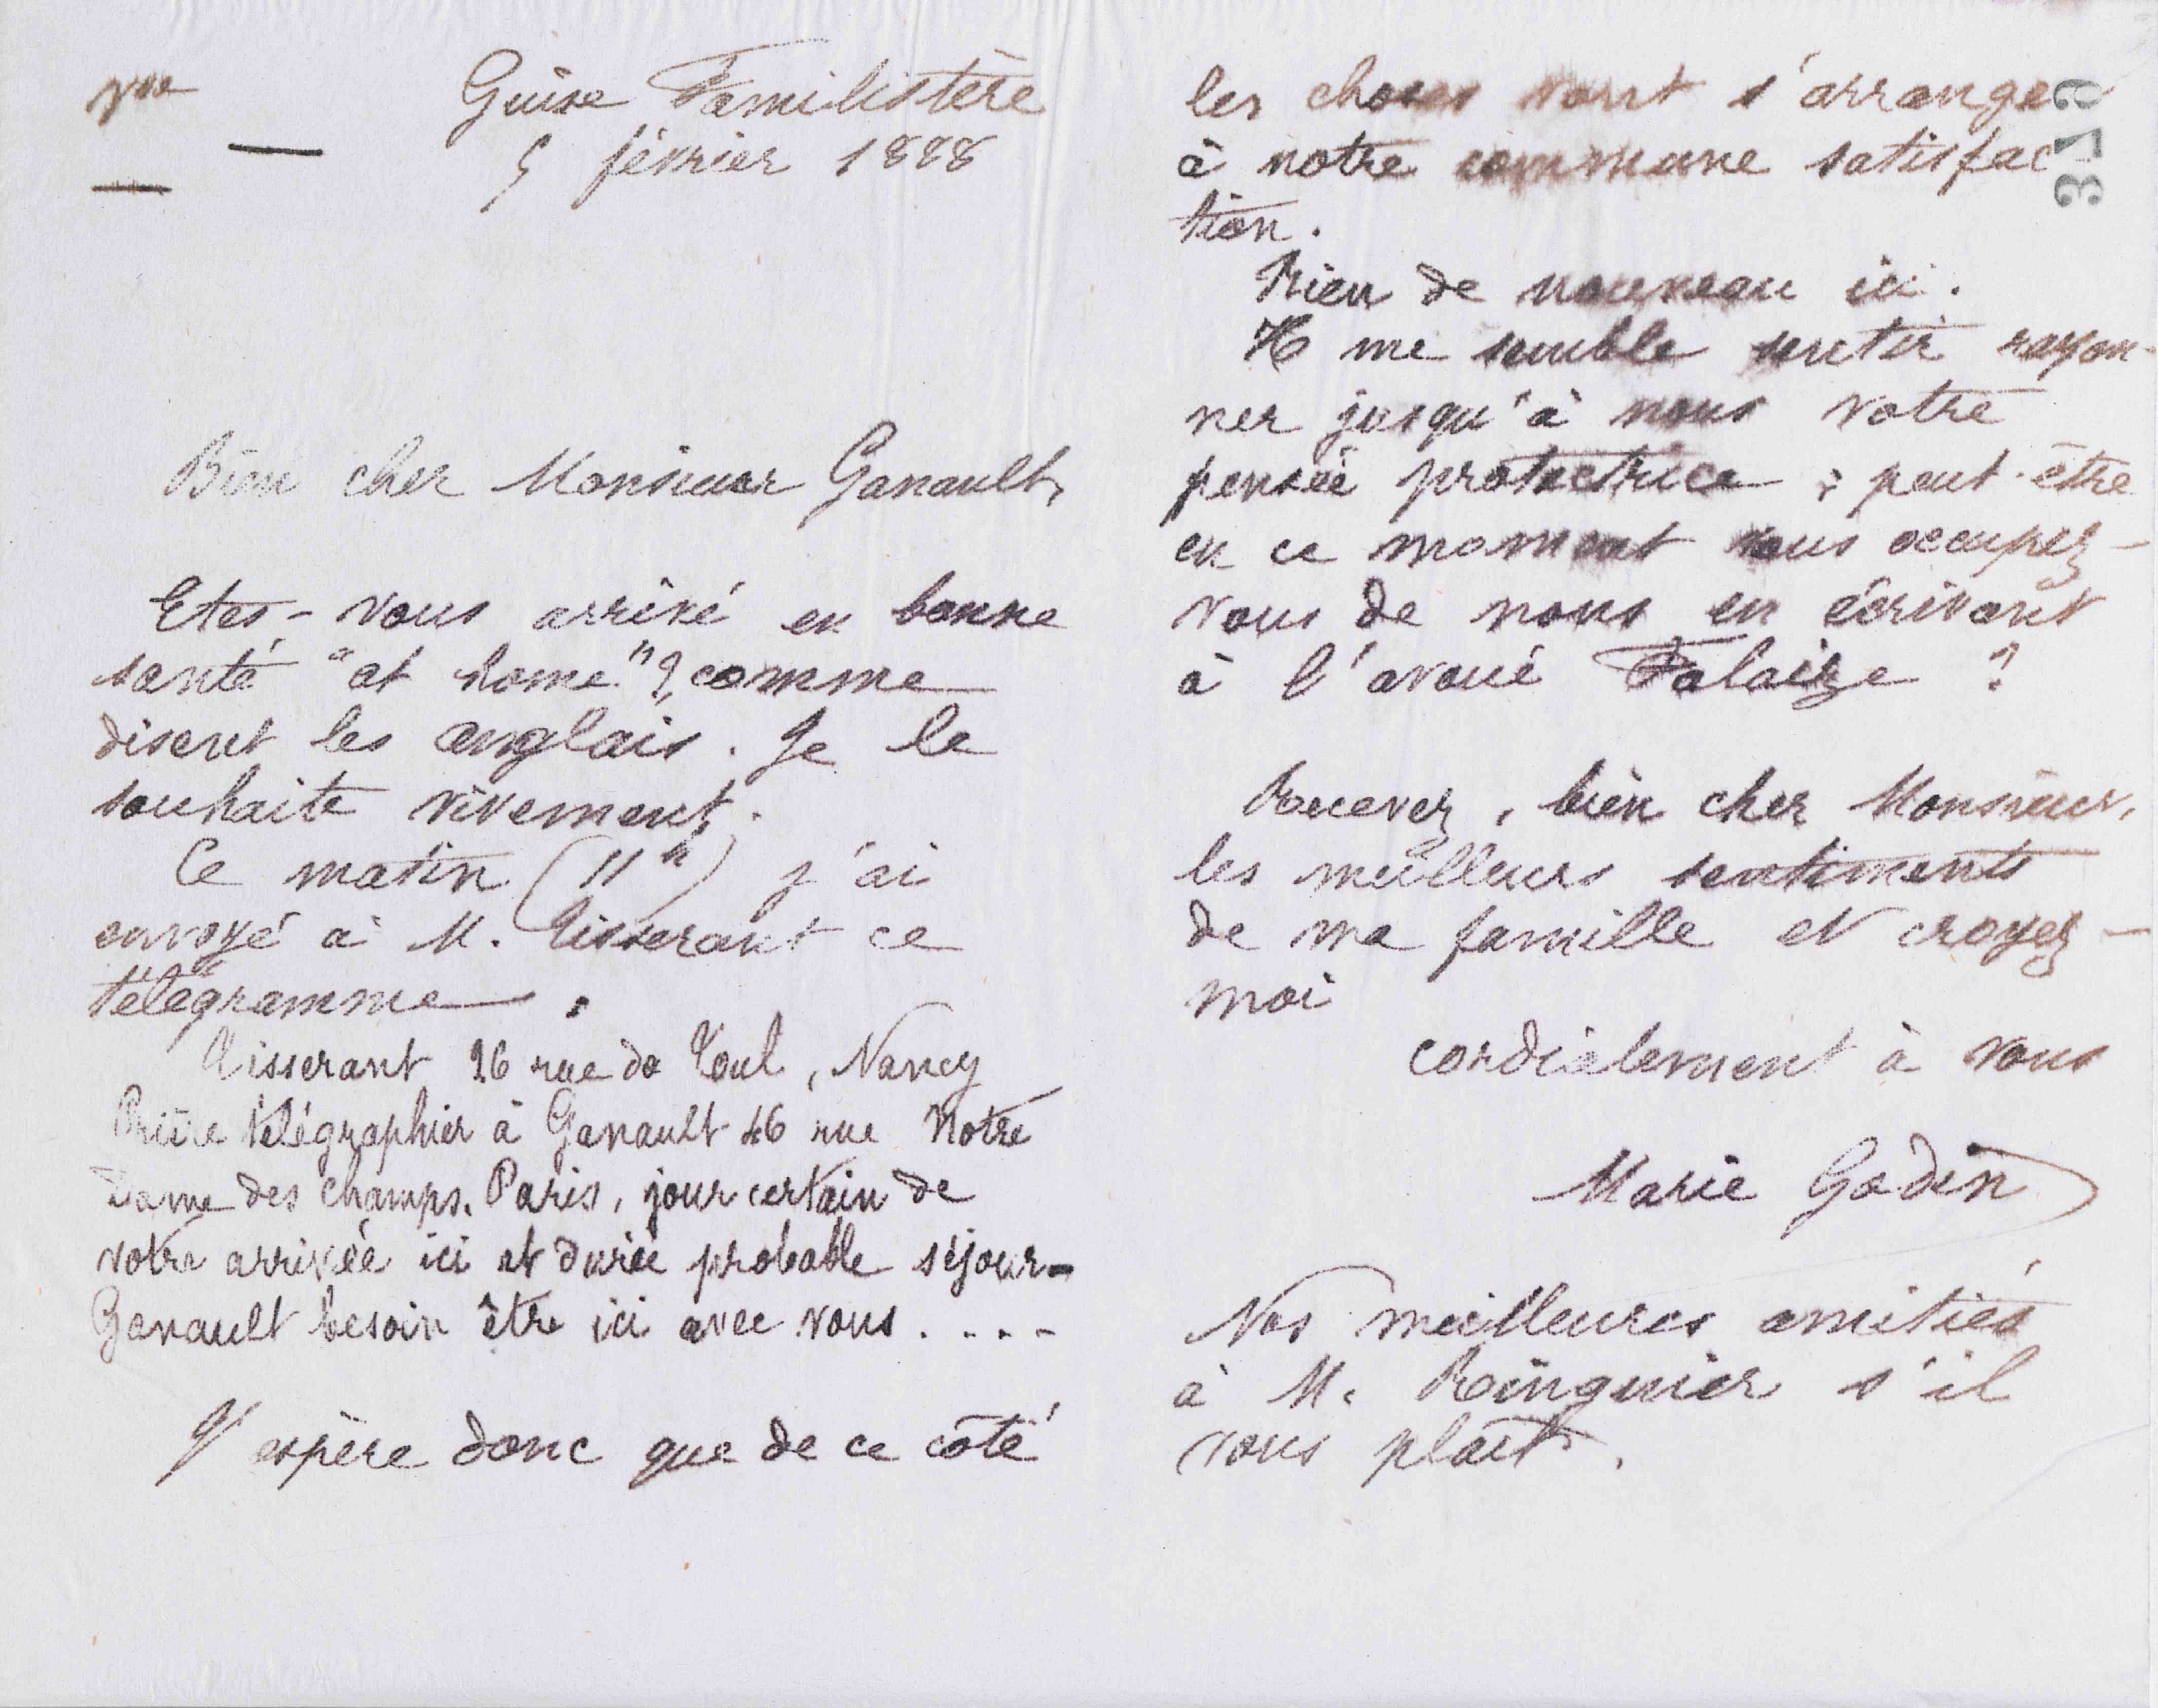 Guise Familistère
5 février 1888
Bien cher Monsieur Ganault,
Etes-vous arrivé en bonne
santé "at home"?, comme
disent les anglais. Je le
souhaite vivement.
Ce matin (11h) j'ai
envoyé à M. Tisserant ce
télégramme.
Tisserant 26 rue de Toul, Nancy
Prière télégraphier à Ganault 46 rue Notre
Dame des Champs. Paris, jour certain de
votre arrivée ici et durée probable séjour-
Ganault besoin être ici avec vous....
J'espère donc que de ce côté
les choses vont s'arranger
à notre commune satisfac
tion.
Rien de nouveau ici.
Il me semble sentir rayon-
ner jusqu'à nous votre
pensée protectrice; peut-être
en ce moment vous occupez-
vous de nous en écrivant
à l'avoué Falaize ?
Recevez, bien cher Monsieur,
les meilleurs sentiments
de ma famille et croyez-
moi
cordialement à vous
Marie Godin
Nos meilleures amitiés
à M. Ringuier s'il
vous plaît.
319